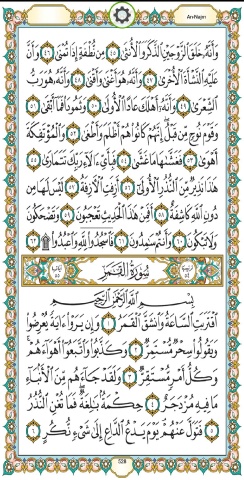 An-Najm
وَأَنَّهُۥ خَلَقَ ٱلزَّوْجَيْنِ ٱلذَّكَرَ وَٱلْأُنثَىٰ ٤٥ مِن نُّطْفَةٍ إِذَا تُمْنَىٰ ٤٦ وَأَنَّ
عَلَيْهِ ٱلنَّشْأَةَ ٱلْأُخْرَىٰ ٤٧ وَأَنَّهُۥ هُوَ أَغْنَىٰ وَأَقْنَىٰ ٤٨ وَأَنَّهُۥ هُوَ رَبُّ
ٱلشِّعْرَىٰ ٤٩ وَأَنَّهُۥٓ أَهْلَكَ عَادًا ٱلْأُولَىٰ ٥٠ وَثَمُودَا۟ فَمَآ أَبْقَىٰ ٥١
وَقَوْمَ نُوحٍ مِّن قَبْلُ إِنَّهُمْ كَانُوا۟ هُمْ أَظْلَمَ وَأَطْغَىٰ ٥٢ وَٱلْمُؤْتَفِكَةَ
أَهْوَىٰ ٥٣ فَغَشَّىٰهَا مَا غَشَّىٰ ٥٤ فَبِأَىِّ ءَالَآءِ رَبِّكَ تَتَمَارَىٰ ٥٥
هَٰذَا نَذِيرٌ مِّنَ ٱلنُّذُرِ ٱلْأُولَىٰٓ ٥٦ أَزِفَتِ ٱلْءَازِفَةُ ٥٧ لَيْسَ لَهَا مِن
دُونِ ٱللَّهِ كَاشِفَةٌ ٥٨ أَفَمِنْ هَٰذَا ٱلْحَدِيثِ تَعْجَبُونَ ٥٩ وَتَضْحَكُونَ
وَلَا تَبْكُونَ ٦٠ وَأَنتُمْ سَٰمِدُونَ ٦١ فَٱسْجُدُوا۟ لِلَّهِ وَٱعْبُدُوا۟ ۩ ٦٢
سُورَةُ القَمَرِ
بِسْمِ ٱللَّهِ ٱلرَّحْمَٰنِ ٱلرَّحِيمِ
ٱقْتَرَبَتِ ٱلسَّاعَةُ وَٱنشَقَّ ٱلْقَمَرُ ١ وَإِن يَرَوْا۟ ءَايَةً يُعْرِضُوا۟
وَيَقُولُوا۟ سِحْرٌ مُّسْتَمِرٌّ ٢ وَكَذَّبُوا۟ وَٱتَّبَعُوٓا۟ أَهْوَآءَهُمْ
وَكُلُّ أَمْرٍ مُّسْتَقِرٌّ ٣ وَلَقَدْ جَآءَهُم مِّنَ ٱلْأَنۢبَآءِ
مَا فِيهِ مُزْدَجَرٌ ٤ حِكْمَةٌۢ بَٰلِغَةٌ فَمَا تُغْنِ ٱلنُّذُرُ
٥ فَتَوَلَّ عَنْهُمْ يَوْمَ يَدْعُ ٱلدَّاعِ إِلَىٰ شَىْءٍ نُّكُرٍ ٦
528